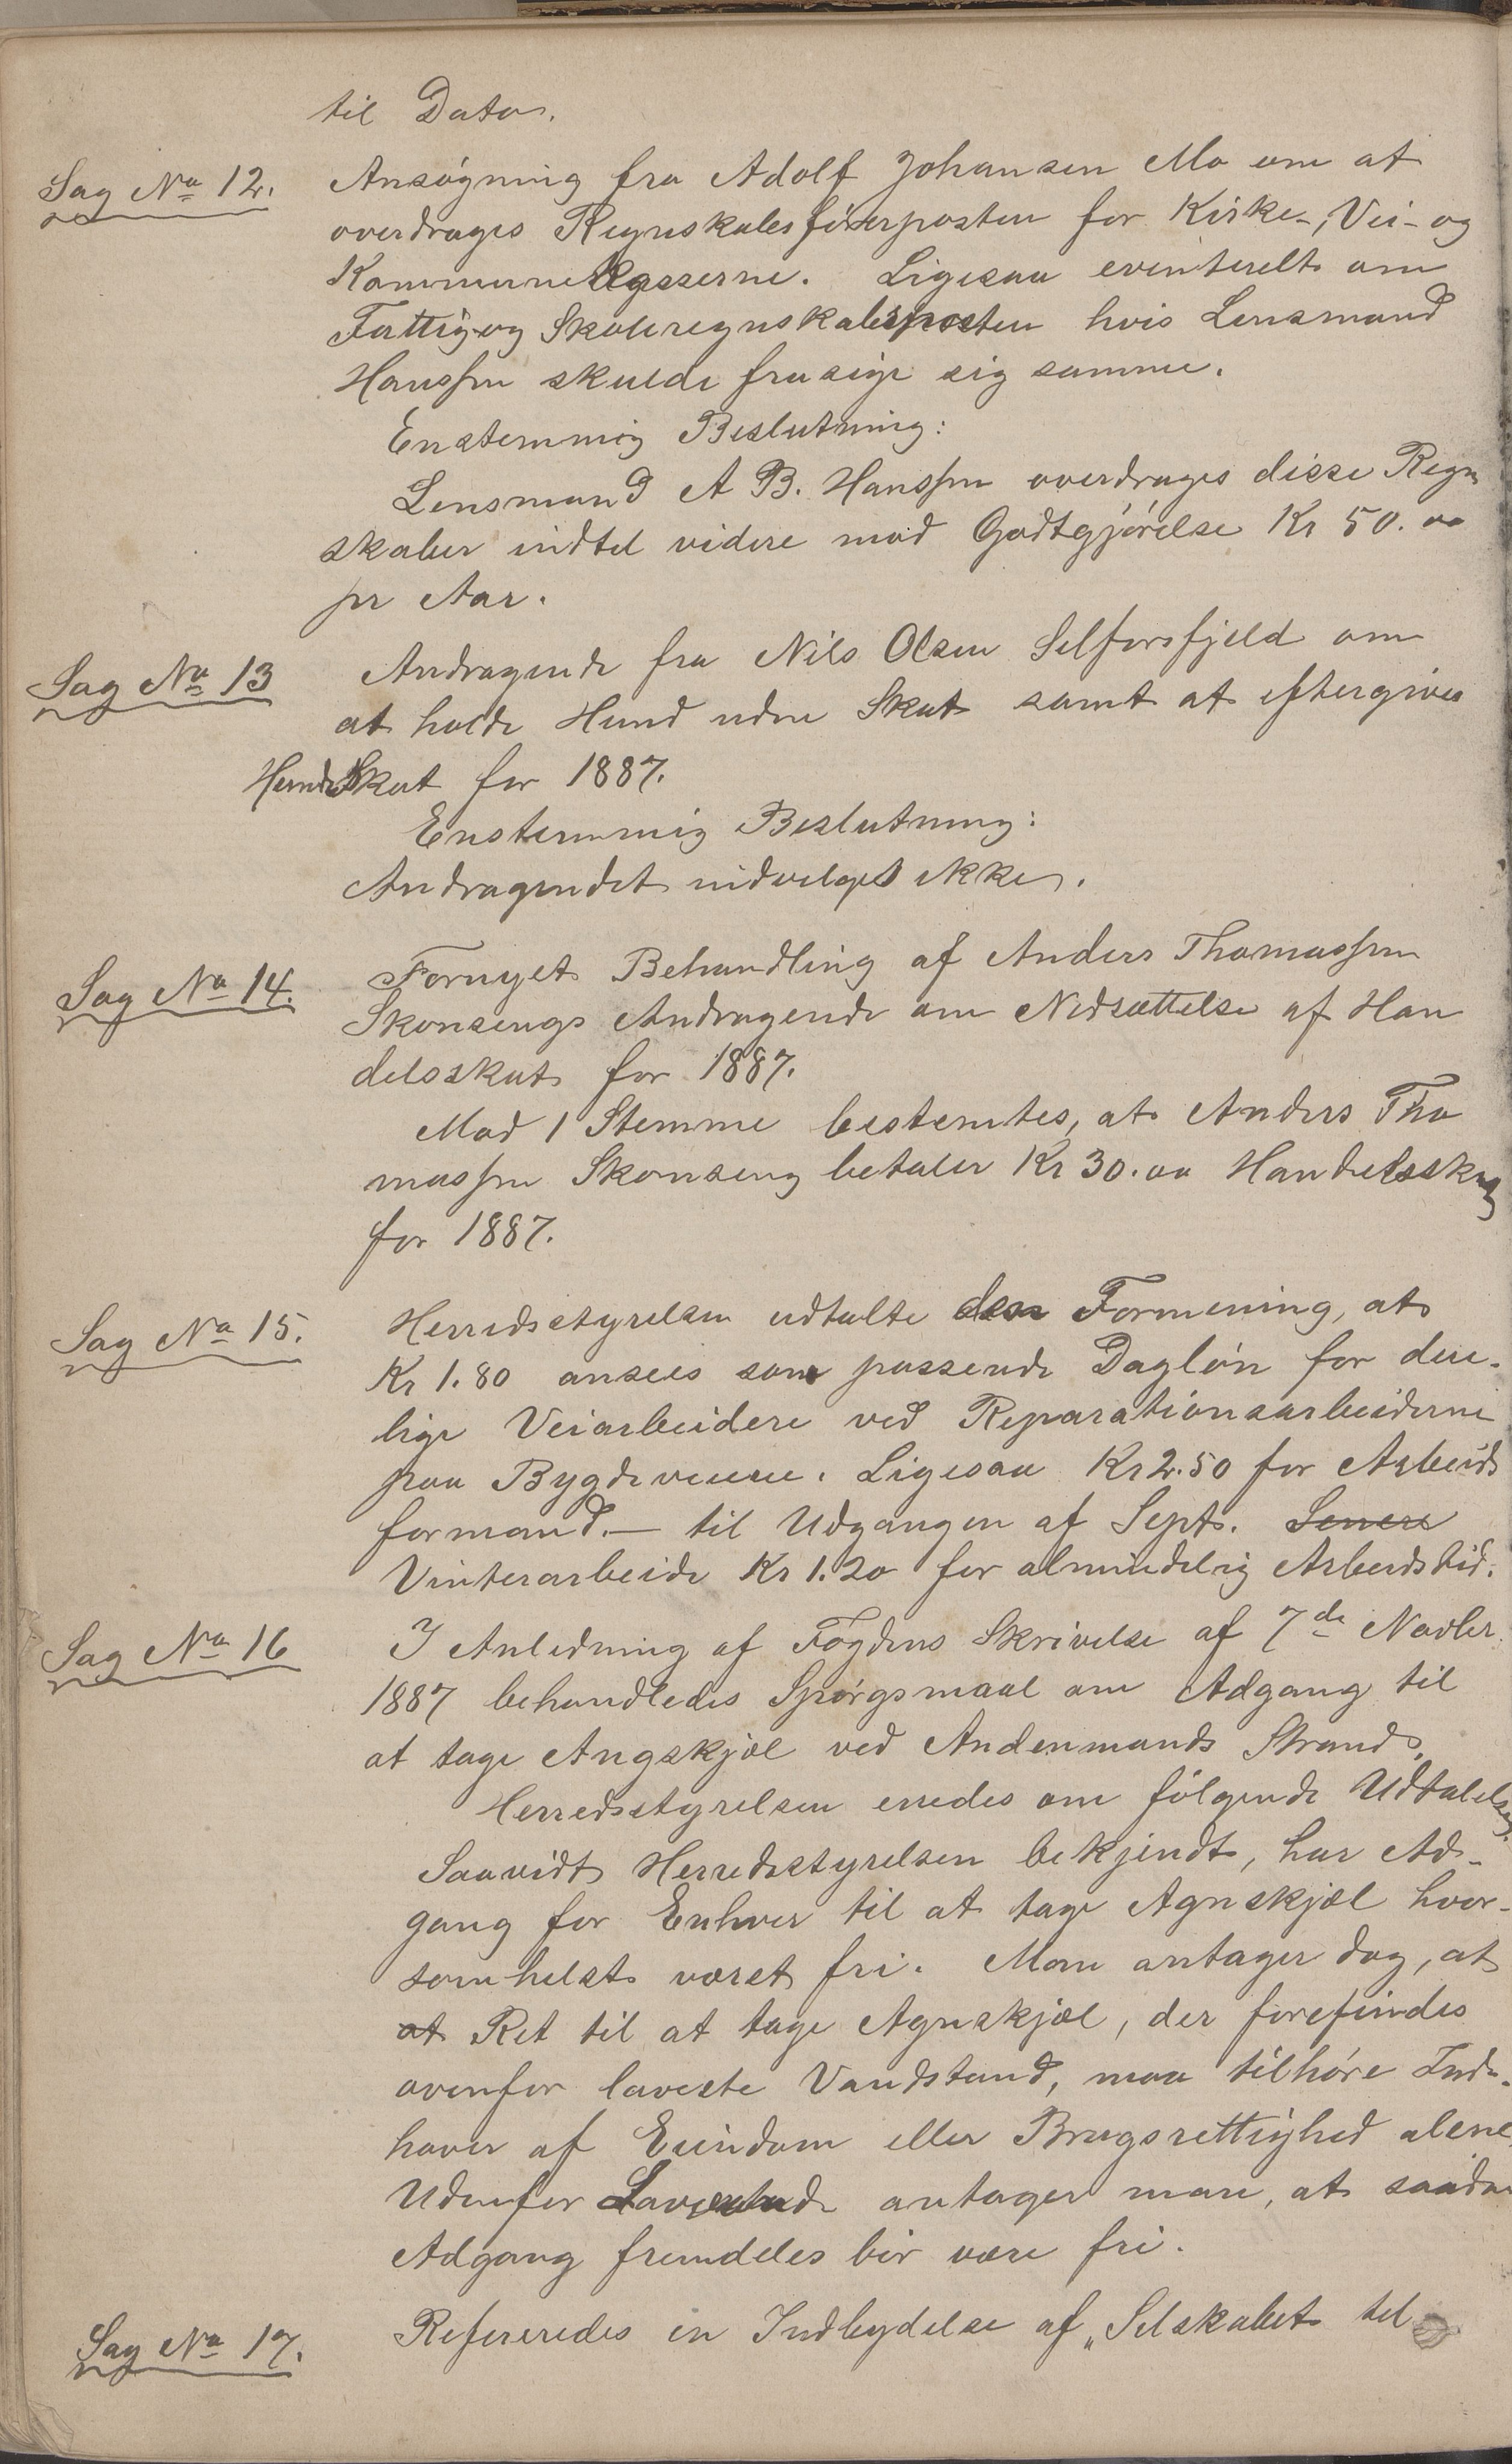 til Dato.
Sag No 12.
Ansøgning fra Adolf Johansen Mo om at
overdrages Regnskabsførerposten for Kirke-, Vei- og
Kommunekasserne. Ligesaa eventuelt om
Fattig-og Skoleregnskabsposten hvis Lensmand
Hanssen skulde frasige sig samme.
Enstemmig Beslutning:
Lensmand A B. Hanssen overdrages disse Regn
skaber indtil videre mod Godtgjørelse Kr 50.00
pr Aar.
Sag No 13
Andragende fra Nils Olsen Selforsfjeld om
at holde Hund uden Skat samt at eftergives
HundeSkat for 1887.
Enstemmig Beslutning:
Andragendet indvilges ikke.
Sag No 14.
Fornyet Behandling af Anders Thomassen
Skonsengs Andragende om Nedsættelse af Han
delsskat for 1887.
Mod 1 Stemme bestemtes, at Anders Tho
massen Skonseng betaler Kr 30.00 Handelsskat
for 1887.
Sag No 15.
Herredsstyrelsen udtalte den Formening, at
Kr 1.80 ansees som passende Dagløn for due-
lige Veiarbeidere ved Reparationsarbeiderne
paa Bygdeveiene. Ligesaa Kr 2.50 for Arbeids
formand.— til Udgangen af Sept. Senere
Vinterarbeide Kr 1.20 for almindelig Arbeidstid.
Sag No 16
I Anledning af Fogdens Skrivelse af 7de Novbr.
1887 behandledes Spørgsmaal om Adgang til
at tage Angskjæl ved Andenmands Strand.
Herredsstyrelsen enedes om følgende Udtalelse.
Saavidt Herredsstyrelsen bekjendt, har Ad-
gang for Enhver til at tage Agnskjæl hvor-
somhelst været fri. Man antager dog, at
at Ret til at tage Agnskjæl, der forefindes
ovenfor laveste Vandstand, maa tilhøre Inde-
haver af Eiendom eller Brugsrettighed alene
Udenfor antager man, at saadan
Adgang fremdeles bør være fri.
Sag No 17.
Refereredes en Indbydelse af „Selskabet til